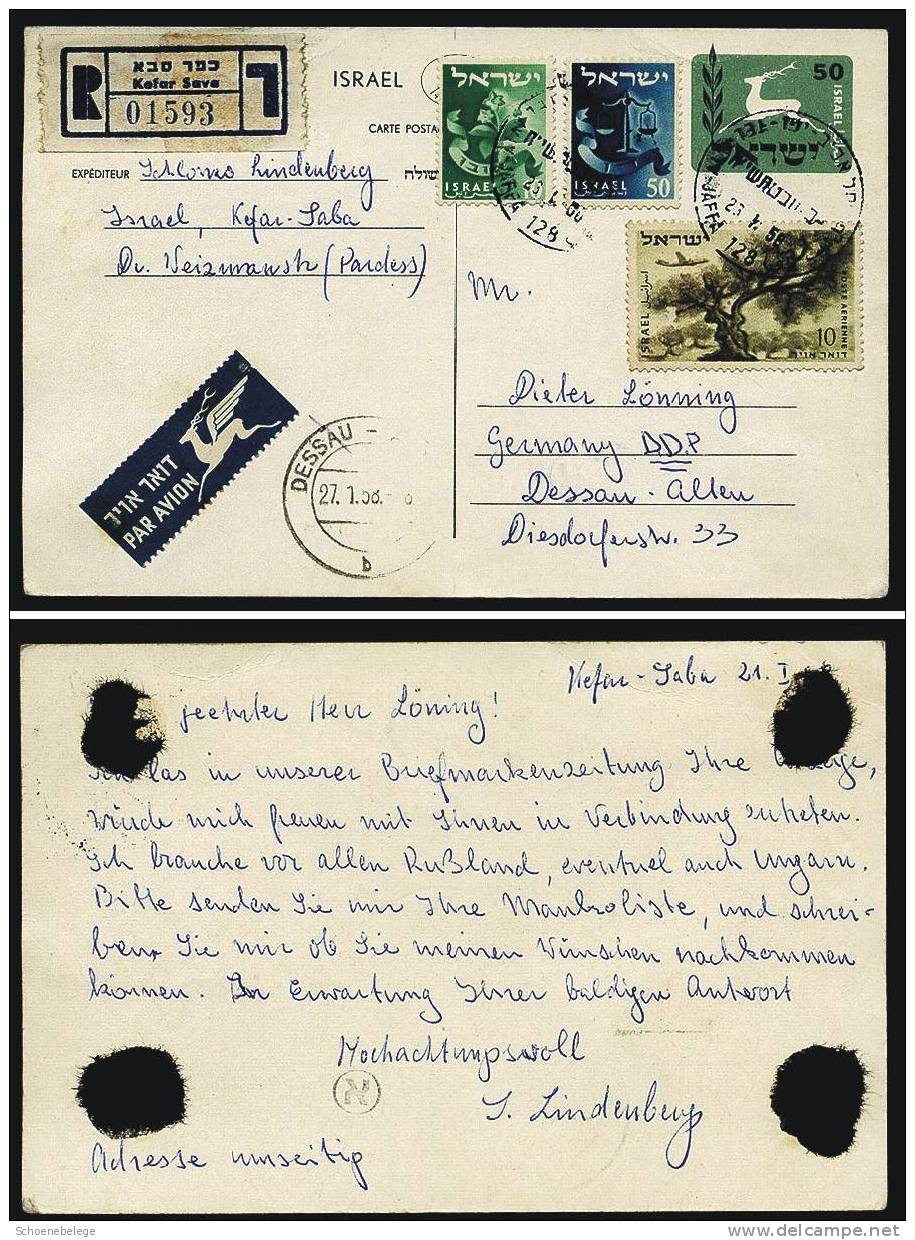 R
כפר סבא
Kefar Sava
01593
ISRAEL
CARTE POSTA
EXPÉDITEUR Schlomo Lindenberg
Israel, Kefar-Saba
Dr. Weizmannstr (Pardess)
ישראל
ISRAEL
ישראל
ISRAEL 50
50
ISRAEL
ישראל
128
23
128
ישראל
ISRAEL
POSTE AERIENNE
10
דואר אויר
Mr.
Dieter Lönning
Germany DDR
Dessau-Alten
Diesdorferstr. 33
דואר אויר
PAR AVION
DESSAU
27.1.58.
b
Kefar-Saba 21. I
geehrter Herr Löning!
las in unserer Briefmarkenzeitung Ihre
würde mich freuen mit Ihnen in Verbindung zutreten.
Ich brauche vor allen Rußland, eventuel auch Ungarn.
Bitte senden Sie mir Ihre Mankoliste, und schrei-
ben Sie mir ob Sie meinen Wünschen nachkommen
können. In Erwartung Ihrer baldigen Antwort
Hochachtungsvoll
א
S. Lindenberg
Adresse umseitig
Schoenebelege
delcampe.net